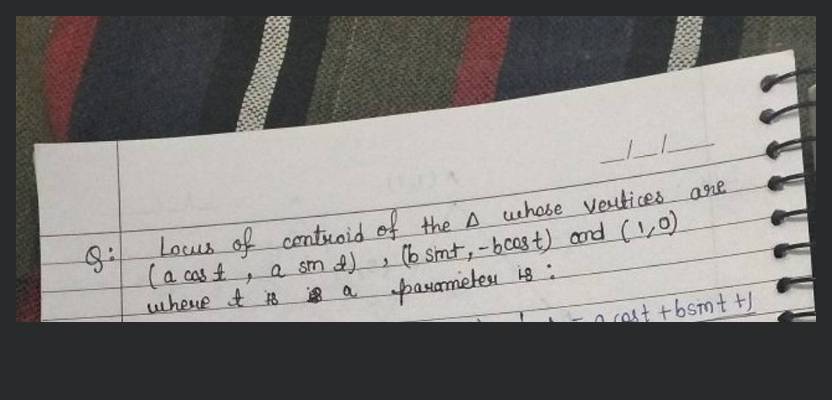 _/_/_
Q: Locus of centroid of the Δ whose vertices are
(a cos t, a sin t), (b sint, -bcos t) and (1,0)
where t is a parameter is:
a cost + bsint + 1